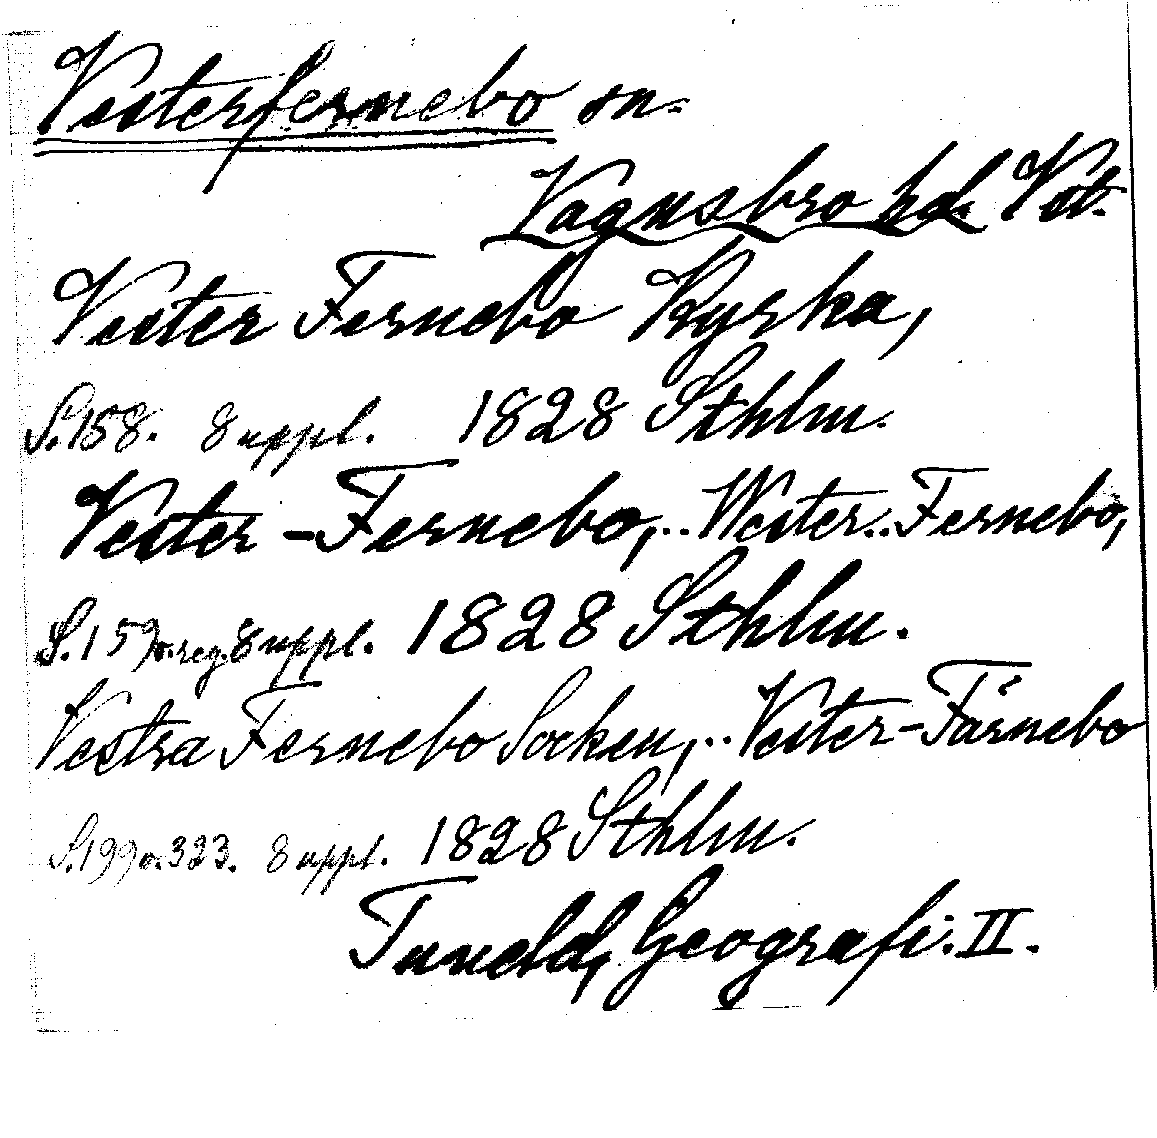 Vesterfernebo sn.
Vagnsbro hd. Vst.
Vester Fernebo Kyrka,
S. 158. 8 uppl. 1828 Sthlm.
Vester-Fernebo,.. Wester.. Fernebo,
S. 159 o. reg. 8 uppl. 1828 Sthlm.
Vestra Fernebo Socken,.. Vester-Färnebo
S. 199 o. 323. 8 uppl. 1828 Sthlm.
Tuneld, Geografi. II.